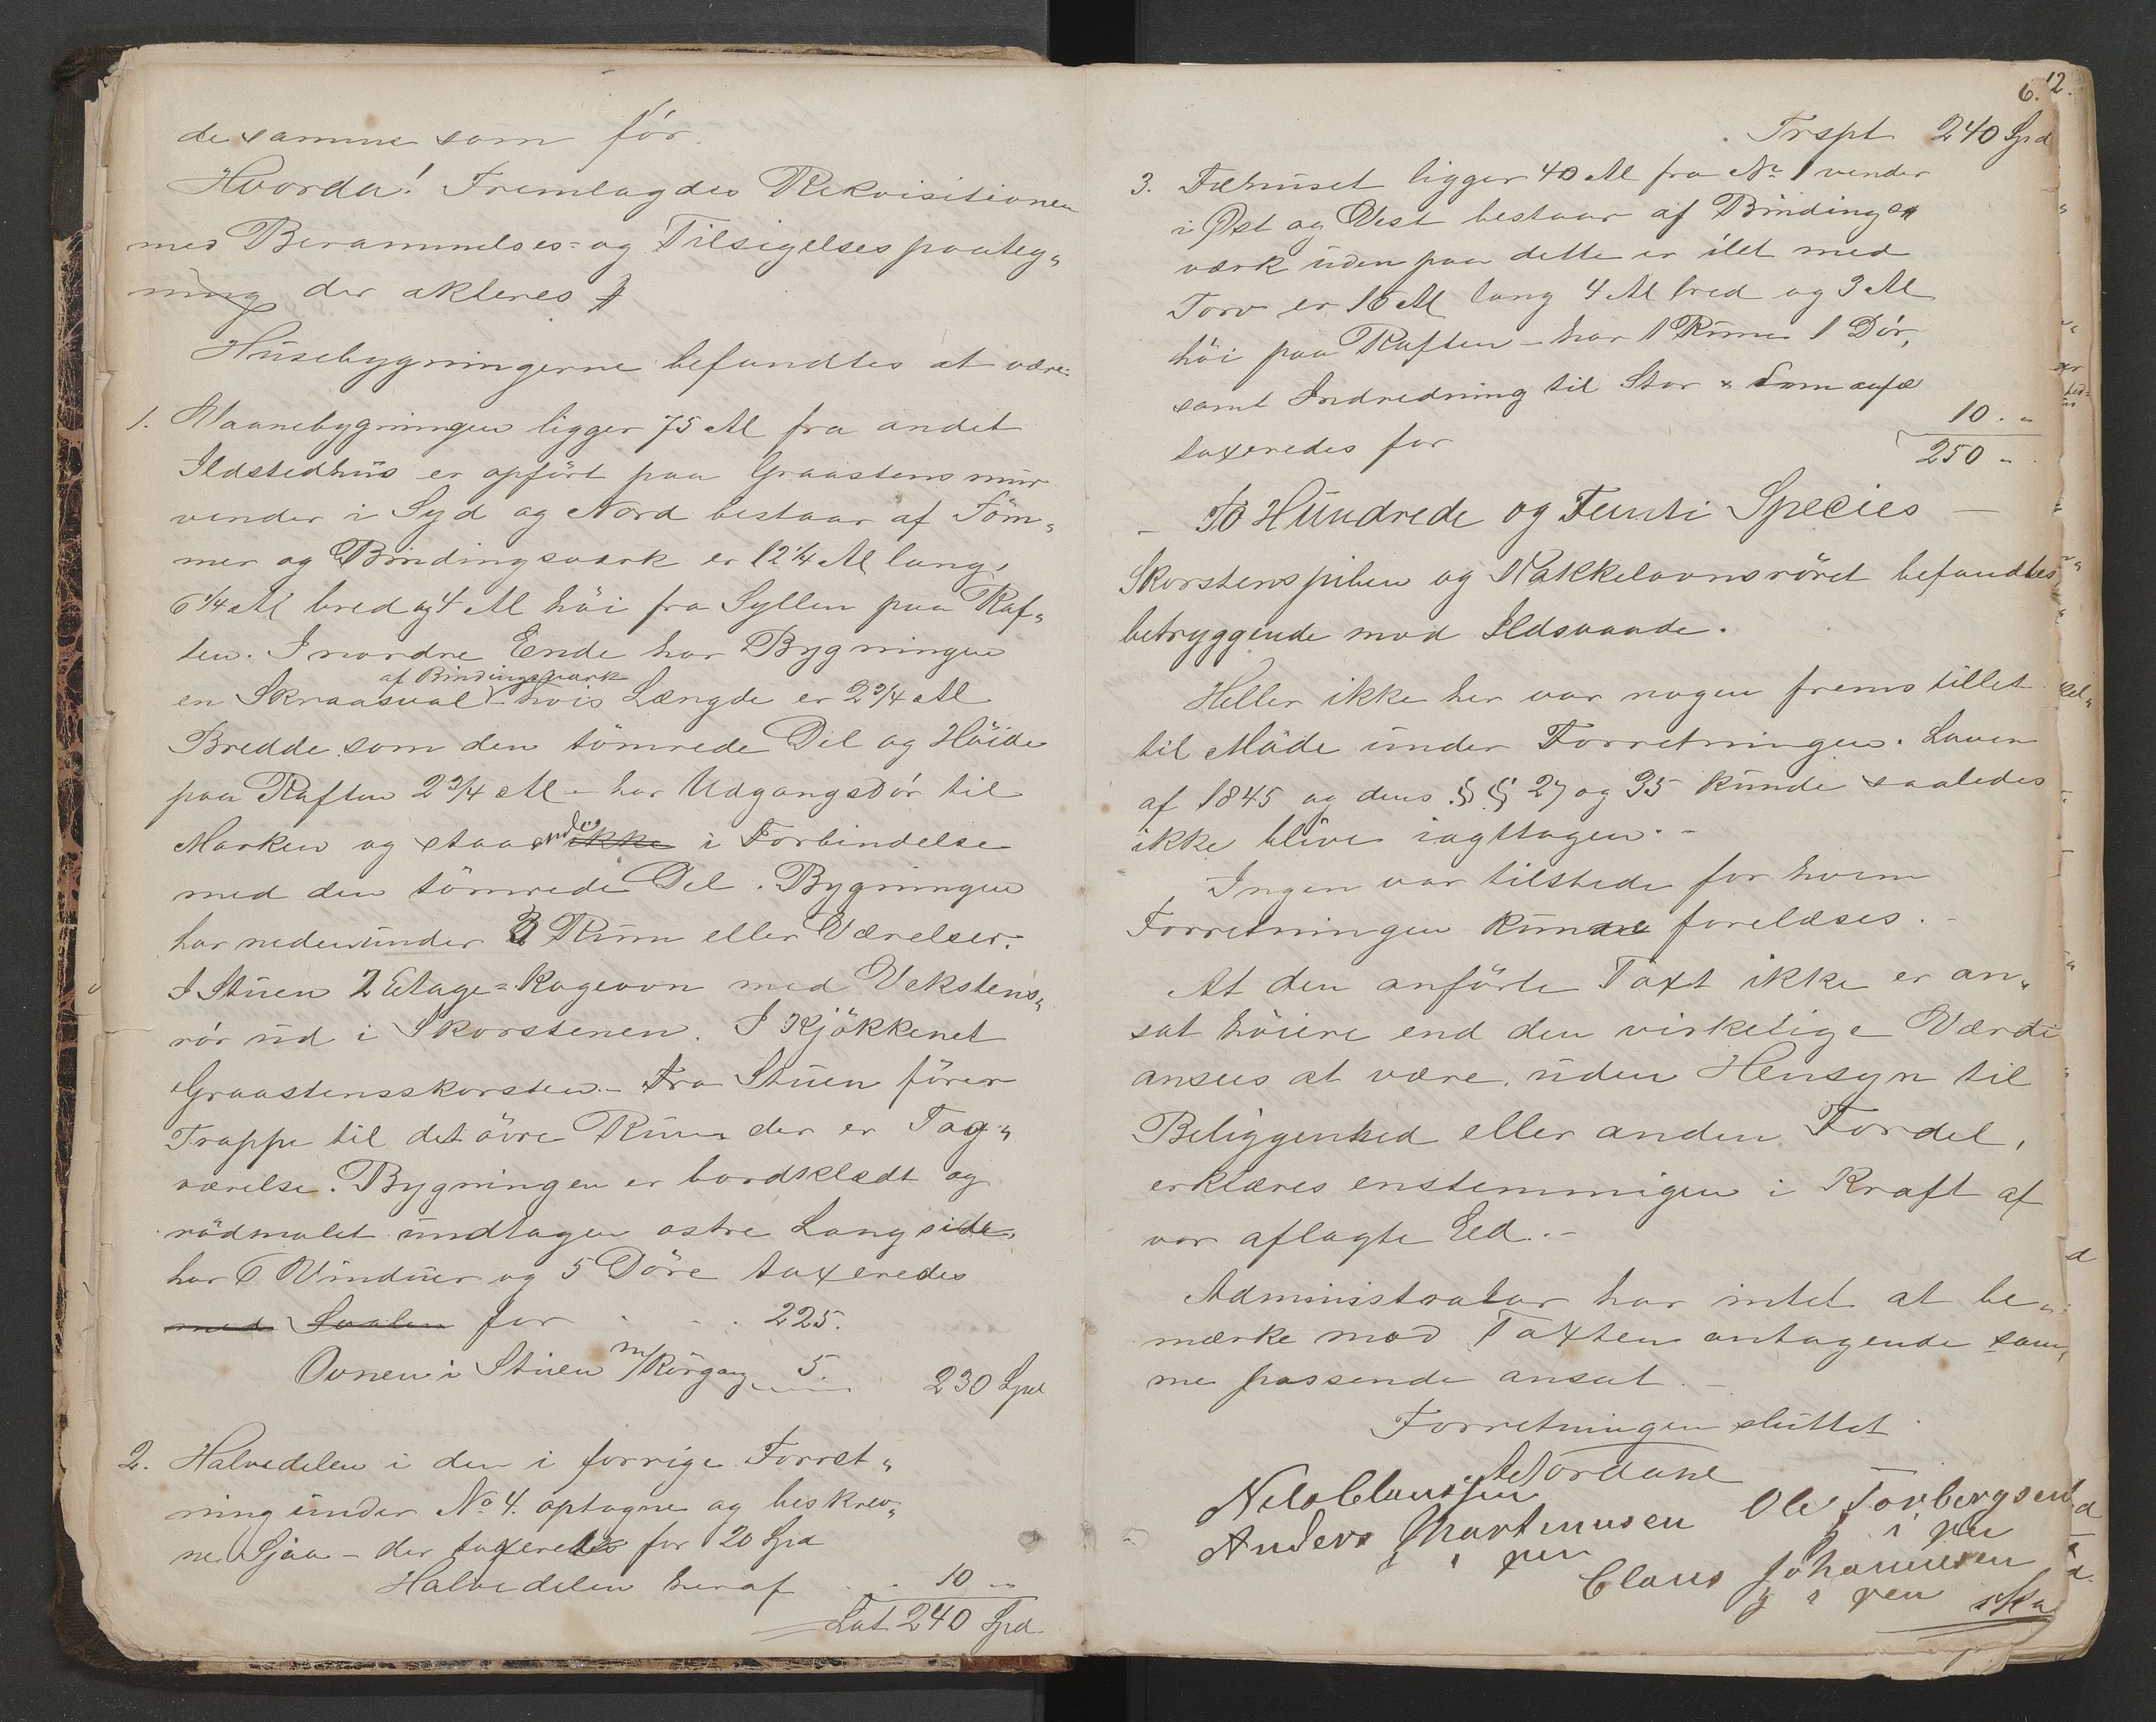 de samme som før.
Hvorda! Fremlagdes Rekvisitionen
med Berammelses- og Tilsigelsespaateg„
ning der akteres
Husebygningerne befandtes at være:
1. Vaanebygningen ligger 75 Al fra andet
Ildstedhus er opført paa Graastensmur
vender i Syd og Nord bestaar af Töm„
mer og Bindingsværk er 12 1/4 Al lang,
6 1/4 Al bred og 4 Al höi fra Syllen paa Raf„
ten. I nordre Ende har Bygningen
af Bindingsværk
en Skraasval hvis Længde er 2 3/4 Al
Bredde som den tömrede Del og Höide
paa Raften 2 3/4 Al – har Udgangsdør til
Marken og staar ikke i Forbindelse
med den tömrede Del. Bygningen
har nedenunder 3 Rum eller Værelser.
I Stuen 2 Etage= Kogeovn med Vekstens„
rör ud i Skorstenen. I Kjökkenet
Graastensskorsten. – Fra Stuen förer
Trappe til det övre Rum der er Tag„
værelse. Bygningen er bordklædt og
rödmalet undtagen østre Langside,
har 6 Vinduer og 5 Döre taxeredes
med Svalen for . . . 225.
Ovnen i Stuen m/Rörgang 5. 230 Spd
2. Halvedelen i den i forrige Forret„
ning under No 4. optagne og beskrev„
ne Sjaa – der taxeredes for 20 Spd
Halvedelen heraf . . 10 „
Lat. 240 Spd.
6. 12.
Trspt 240 Spd
3. Fæhuset ligger 40 Al fra No 1 vender
i Øst og Vest bestaar af Bindings
værk uden paa dette er ilet med
Torv er 16 Al lang 4 Al bred og 3 Al
höi paa Raften – har 1 Rum 1 Dör,
samt Indredning til Stor & Smaafæ
taxeredes for 10 . „
250 „
– To Hundrede og Femti Species –
Skorstenspiben og Kakkelovnsröret befandtes
betryggende mod Ildsvaade.
Heller ikke her var nogen fremstillet
til Möde under Forretningen. Loven
af 1845 og dens §§ 27 og 35 kunde saaledes
ikke blive iagttagen. –
Ingen var tilstede for hvem
Forretningen kunde forelæses. –
At den anförte Taxt ikke er an„
sat höiere end den virkelige Værdi
ansees at være, uden Hensyn til
Beliggenhed eller anden Fordel,
erklæres enstemmigen i Kraft af
vor aflagte Eed. –
Administrator har intet at be„
mærke mod Taxten antagende sam„
me passende ansat. –
Forretningen sluttet
Nordahl
Nils Clausen
Ole Torbergsen
Anders Martinusen i pen
i pen
Claus Johannesen
i pen